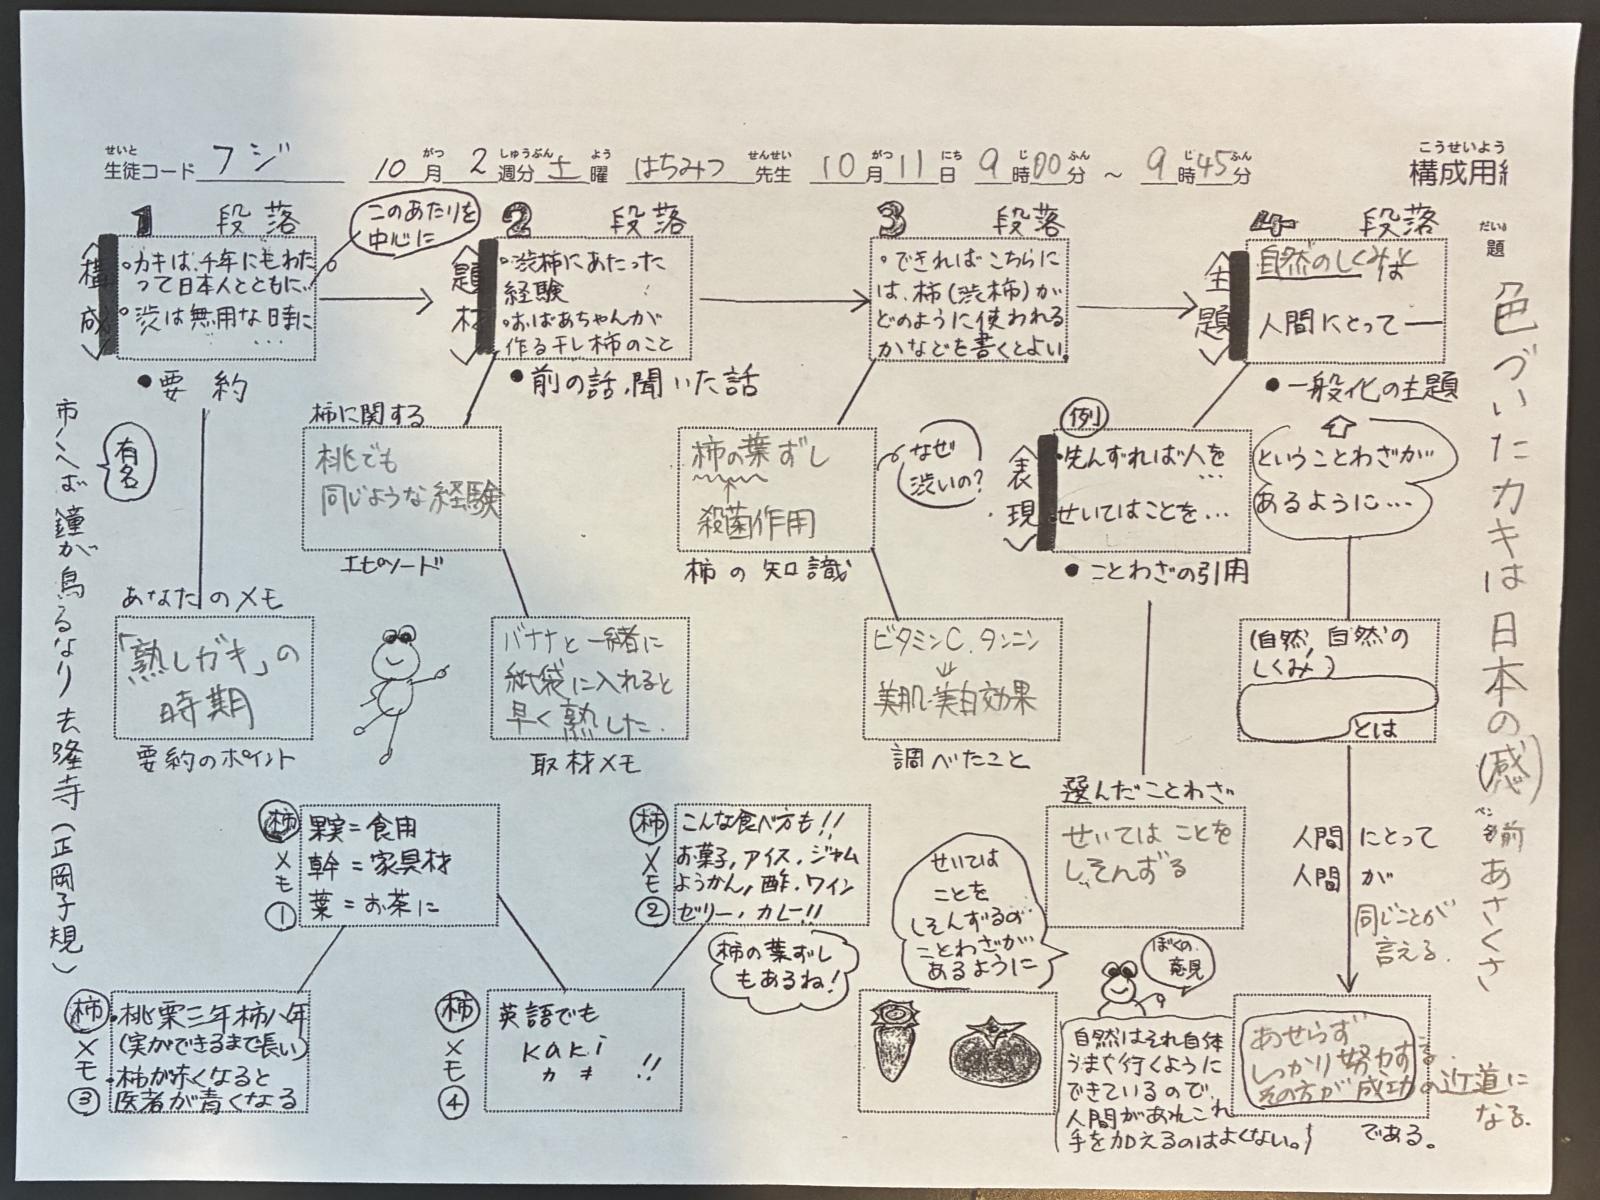 せいと
生徒コード フジ
10月 2週分 土曜 はちみつ 先生 10月11日 9時00分 ～ 9時45分
がつ しゅうぶん よう せんせい がつ にち じ ふん じ ふん
こうせいよう
構成用紙
だい
題
色づいたカキは日本の(感)
ペン
名前 あさくさ
1 段落
〈構成〉
・カキは、千年にもわた
って日本人とともに…
・渋は無用な時に
…
このあたりを
中心に
●要約
2 段落
〈題材〉
・渋柿にあたった
経験
・おばあちゃんが
作る干し柿のこと
●前の話、聞いた話
3 段落
・できればこちらに
は、柿(渋柿)が
どのように使われる
かなどを書くとよい。
4 段落
〈主題〉
自然のしくみとは
人間にとって―
●一般化の主題
柿に関する
桃でも
同じような経験
エピソード
柿の葉ずし
殺菌作用
柿の知識
なぜ
渋いの?
〈表現〉
例
・先んずれば人を
…
せいてはことを…
●ことわざの引用
ということわざが
あるように…
市くへば 鐘が鳥るなり 去隆寺(正岡子規)
有名
あなたのメモ
「熟しガキ」の
時期
要約のポイント
バナナと一緒に
紙袋に入れると
早く熟した.
取材メモ
ビタミンC.タンニン
⇓
美肌・美白効果
調べたこと
(自然,自然の
しくみ)
とは
選んだことわざ
せいては ことを
しそんずる
人間にとって
人間が
同じことが
言える.
柿メモ①
果実=食用
幹=家具材
葉=お茶に
柿メモ②
こんな食べ方も!!
お菓子,アイス,ジャム
ようかん,酢,ワイン
ゼリー,カレー!!
柿の葉ずし
もあるね!
せいては
ことを
しそんずるの
ことわざが
あるように
柿メモ③
・桃栗三年柿八年
(実ができるまで長い)
・柿が赤くなると
医者が青くなる
柿メモ④
英語でも
kaki
カキ
!!
ぼくの
意見
自然はそれ自体
うまく行くように
できているので、
人間があれこれ
手を加えるのはよくない。
あせらず
しっかり努力する.
その方が成功の近道に
なる.
である。